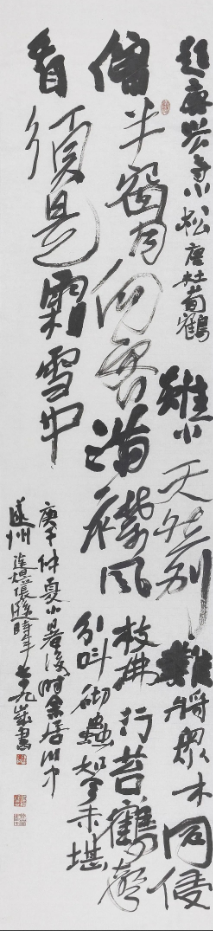 題唐興寺小松 唐杜荀鶴
雖小天然別難將眾木同侵
僧半窗月向客滿襟風枝拂行苔鶴聲
分叫砌蟲如今未堪
看須是霜雪中
仲夏小暑後時客居